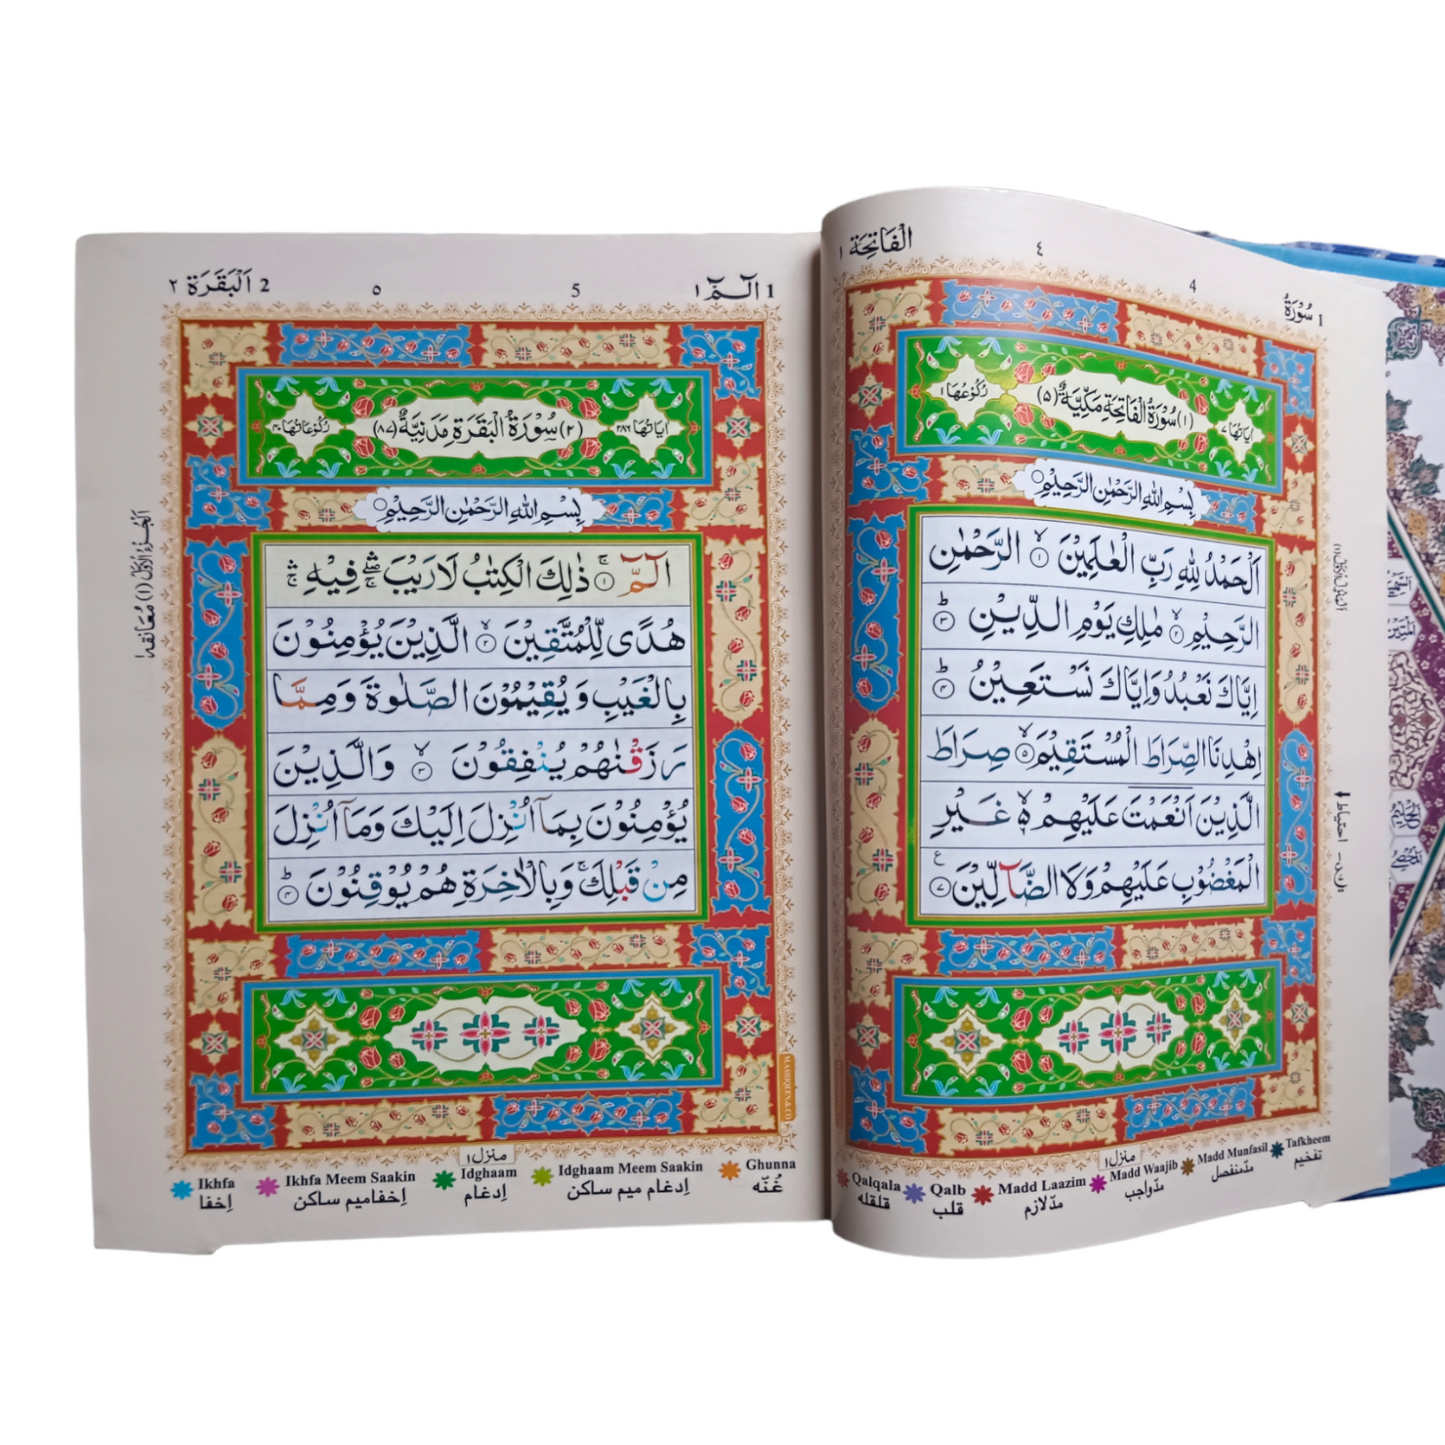 1 سُوْرَةُ
4
٤
الْفَاتِحَة ١
اٰيَاتُهَا ٧
(١) سُوْرَةُ الْفَاتِحَةِ مَكِّيَّةٌ (٥)
رُكُوْعُهَا ١
بِسْمِ اللّٰهِ الرَّحْمٰنِ الرَّحِيْمِ
اَلْحَمْدُ لِلّٰهِ رَبِّ الْعٰلَمِيْنَ ١ الرَّحْمٰنِ
الرَّحِيْمِ ٢ مٰلِكِ يَوْمِ الدِّيْنِ ٣
اِيَّاكَ نَعْبُدُ وَاِيَّاكَ نَسْتَعِيْنُ ٤
اِهْدِنَا الصِّرَاطَ الْمُسْتَقِيْمَ ٥ صِرَاطَ
الَّذِيْنَ اَنْعَمْتَ عَلَيْهِمْ غَيْرِ
الْمَغْضُوْبِ عَلَيْهِمْ وَلَا الضَّآلِّيْنَ ٧
منزل ١
Qalqala Qalb Madd Laazim Madd Waajib Madd Munfasil Tafkheem
قلقله قلب مدّلازم مدّواجب مدّمنفصل تفخيم
1 الٓـمّٓ ١
5
٥
2 اَلْبَقَرَة ٢
اٰيَاتُهَا ٢٨٦
(٢) سُوْرَةُ الْبَقَرَةِ مَدَنِيَّةٌ (٨٧)
رُكُوْعَاتُهَا ٤٠
بِسْمِ اللّٰهِ الرَّحْمٰنِ الرَّحِيْمِ
الٓـمّٓ ١ ذٰلِكَ الْكِتٰبُ لَا رَيْبَ فِيْهِ
هُدًى لِّلْمُتَّقِيْنَ ٢ الَّذِيْنَ يُؤْمِنُوْنَ
بِالْغَيْبِ وَيُقِيْمُوْنَ الصَّلٰوةَ وَمِمَّا
رَزَقْنٰهُمْ يُنْفِقُوْنَ ٣ وَالَّذِيْنَ
يُؤْمِنُوْنَ بِمَآ اُنْزِلَ اِلَيْكَ وَمَآ اُنْزِلَ
مِنْ قَبْلِكَ وَبِالْاٰخِرَةِ هُمْ يُوْقِنُوْنَ ٤
اَلْجُزْءُ الْاَوَّلُ (١) مُعَانقه ١
منزل ١
Ikhfa Ikhfa Meem Saakin Idghaam Idghaam Meem Saakin Ghunna
اِخفا اِخفاميم ساكن اِدغام اِدغام ميم ساكن غُنّه